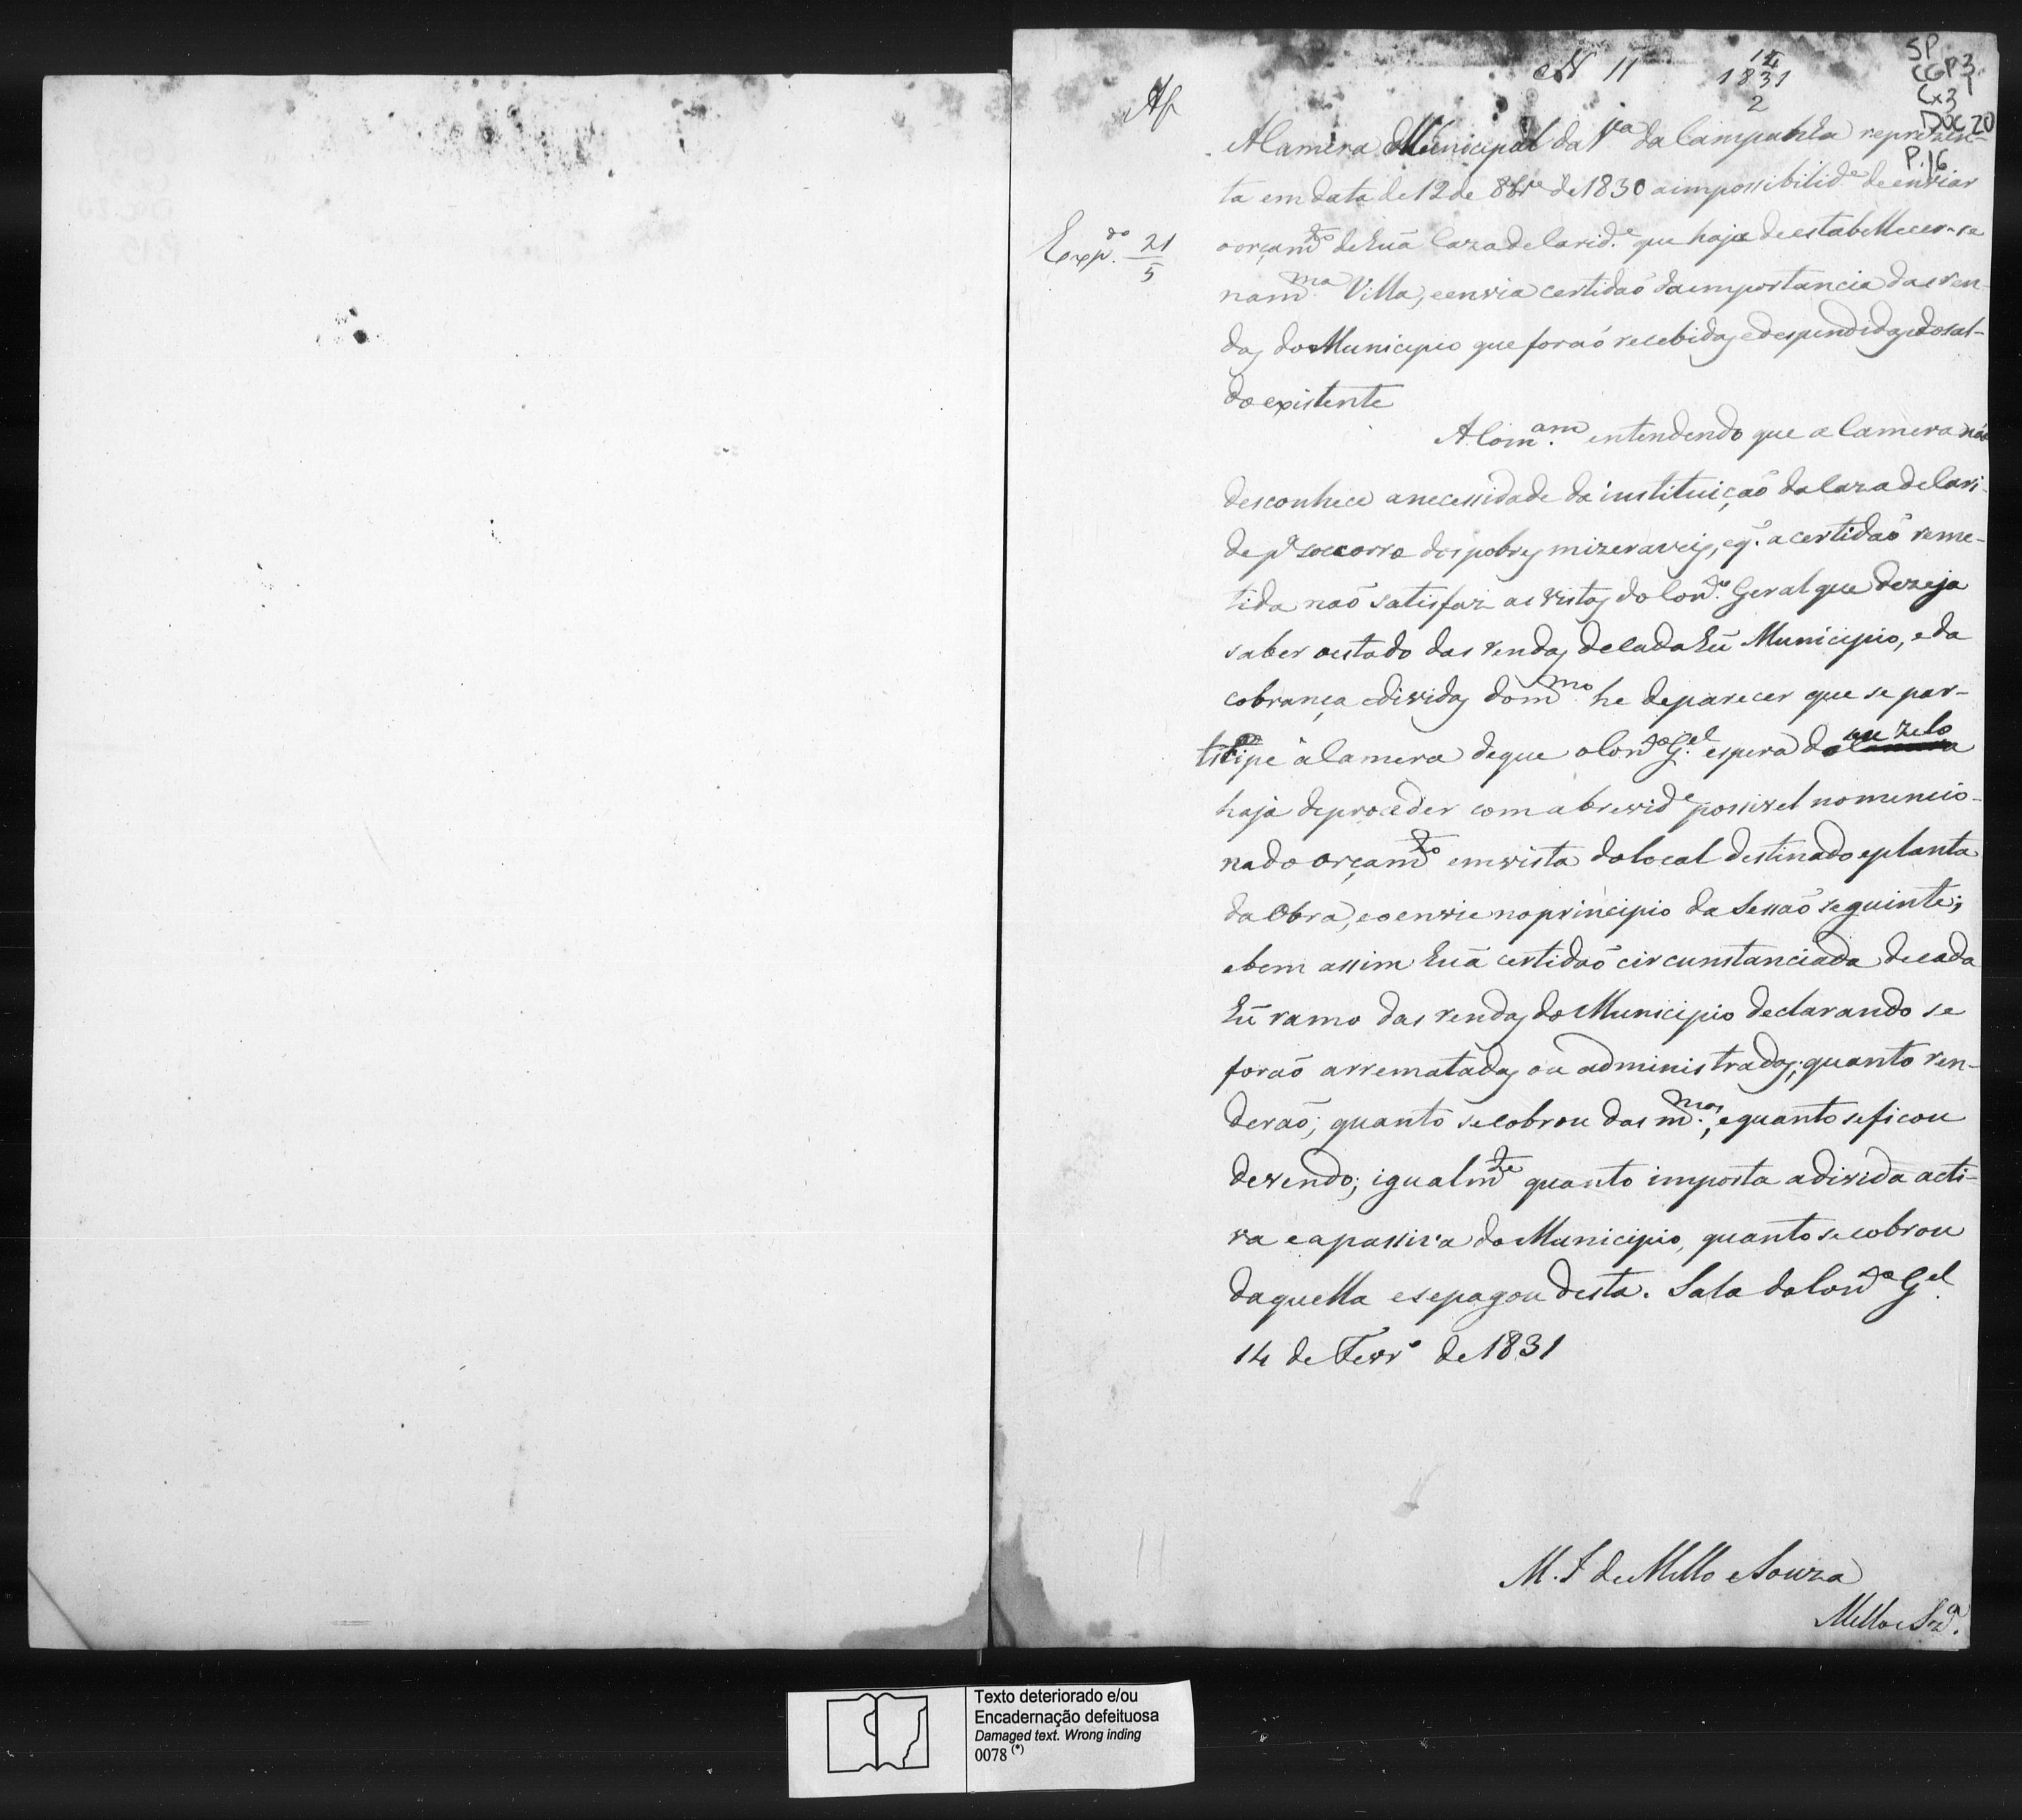 N 11
14
1831
2
SP
CGP3.1
Cx3
DOC20
P.16
Ap
A Camera Municipal da Va da Campanha reprezen-
ta em data de 12 de 8bre de 1830 a impossibilide de enviar
o orçamto de huã Caza de Caride que haja de estabellecer-se
Expdo. 21
5
na mma Villa, e envia certidaõ da importancia das ren-
das do Municipio que foraõ recebidas e despendidas e do sal-
do existente
A Comam entendendo que a Camera não
desconhece a necessidade da instituiçaõ da Caza de Cari-
de pa soccorro dos pobres mizeraveis, e q. a certidaõ reme-
tida naõ satisfaz as vistas do Cono. Geral que dezeja
saber o estado das rendas de cada hũ Municipio, e da
cobrança e dividas do mmo he de parecer que se par-
ticipe á Camera de que o Cono Gel. espera do seu zelo
haja de proceder com a brevide possivel no mencio-
nado orçamto em vista do local destinado e planta
da Obra, e o envie no principio da Sessaõ seguinte;
e bem assim huã certidaõ circunstanciada de cada
hũ ramo das rendas do Municipio declarando se
foraõ arrematadas ou administradas; quanto ren-
deraõ; quanto se cobrou das mmas, e quanto se ficou
devendo; igualmte quanto importa a divida acti-
va e a passiva do Municipio, quanto se cobrou
daquella e se pagou desta. Sala do Cono Gel.
14 de Fevro de 1831
M. I de Mello e Souza
Mello e Sza.
Texto deteriorado e/ou
Encadernação defeituosa
Damaged text. Wrong inding
0078 (*)